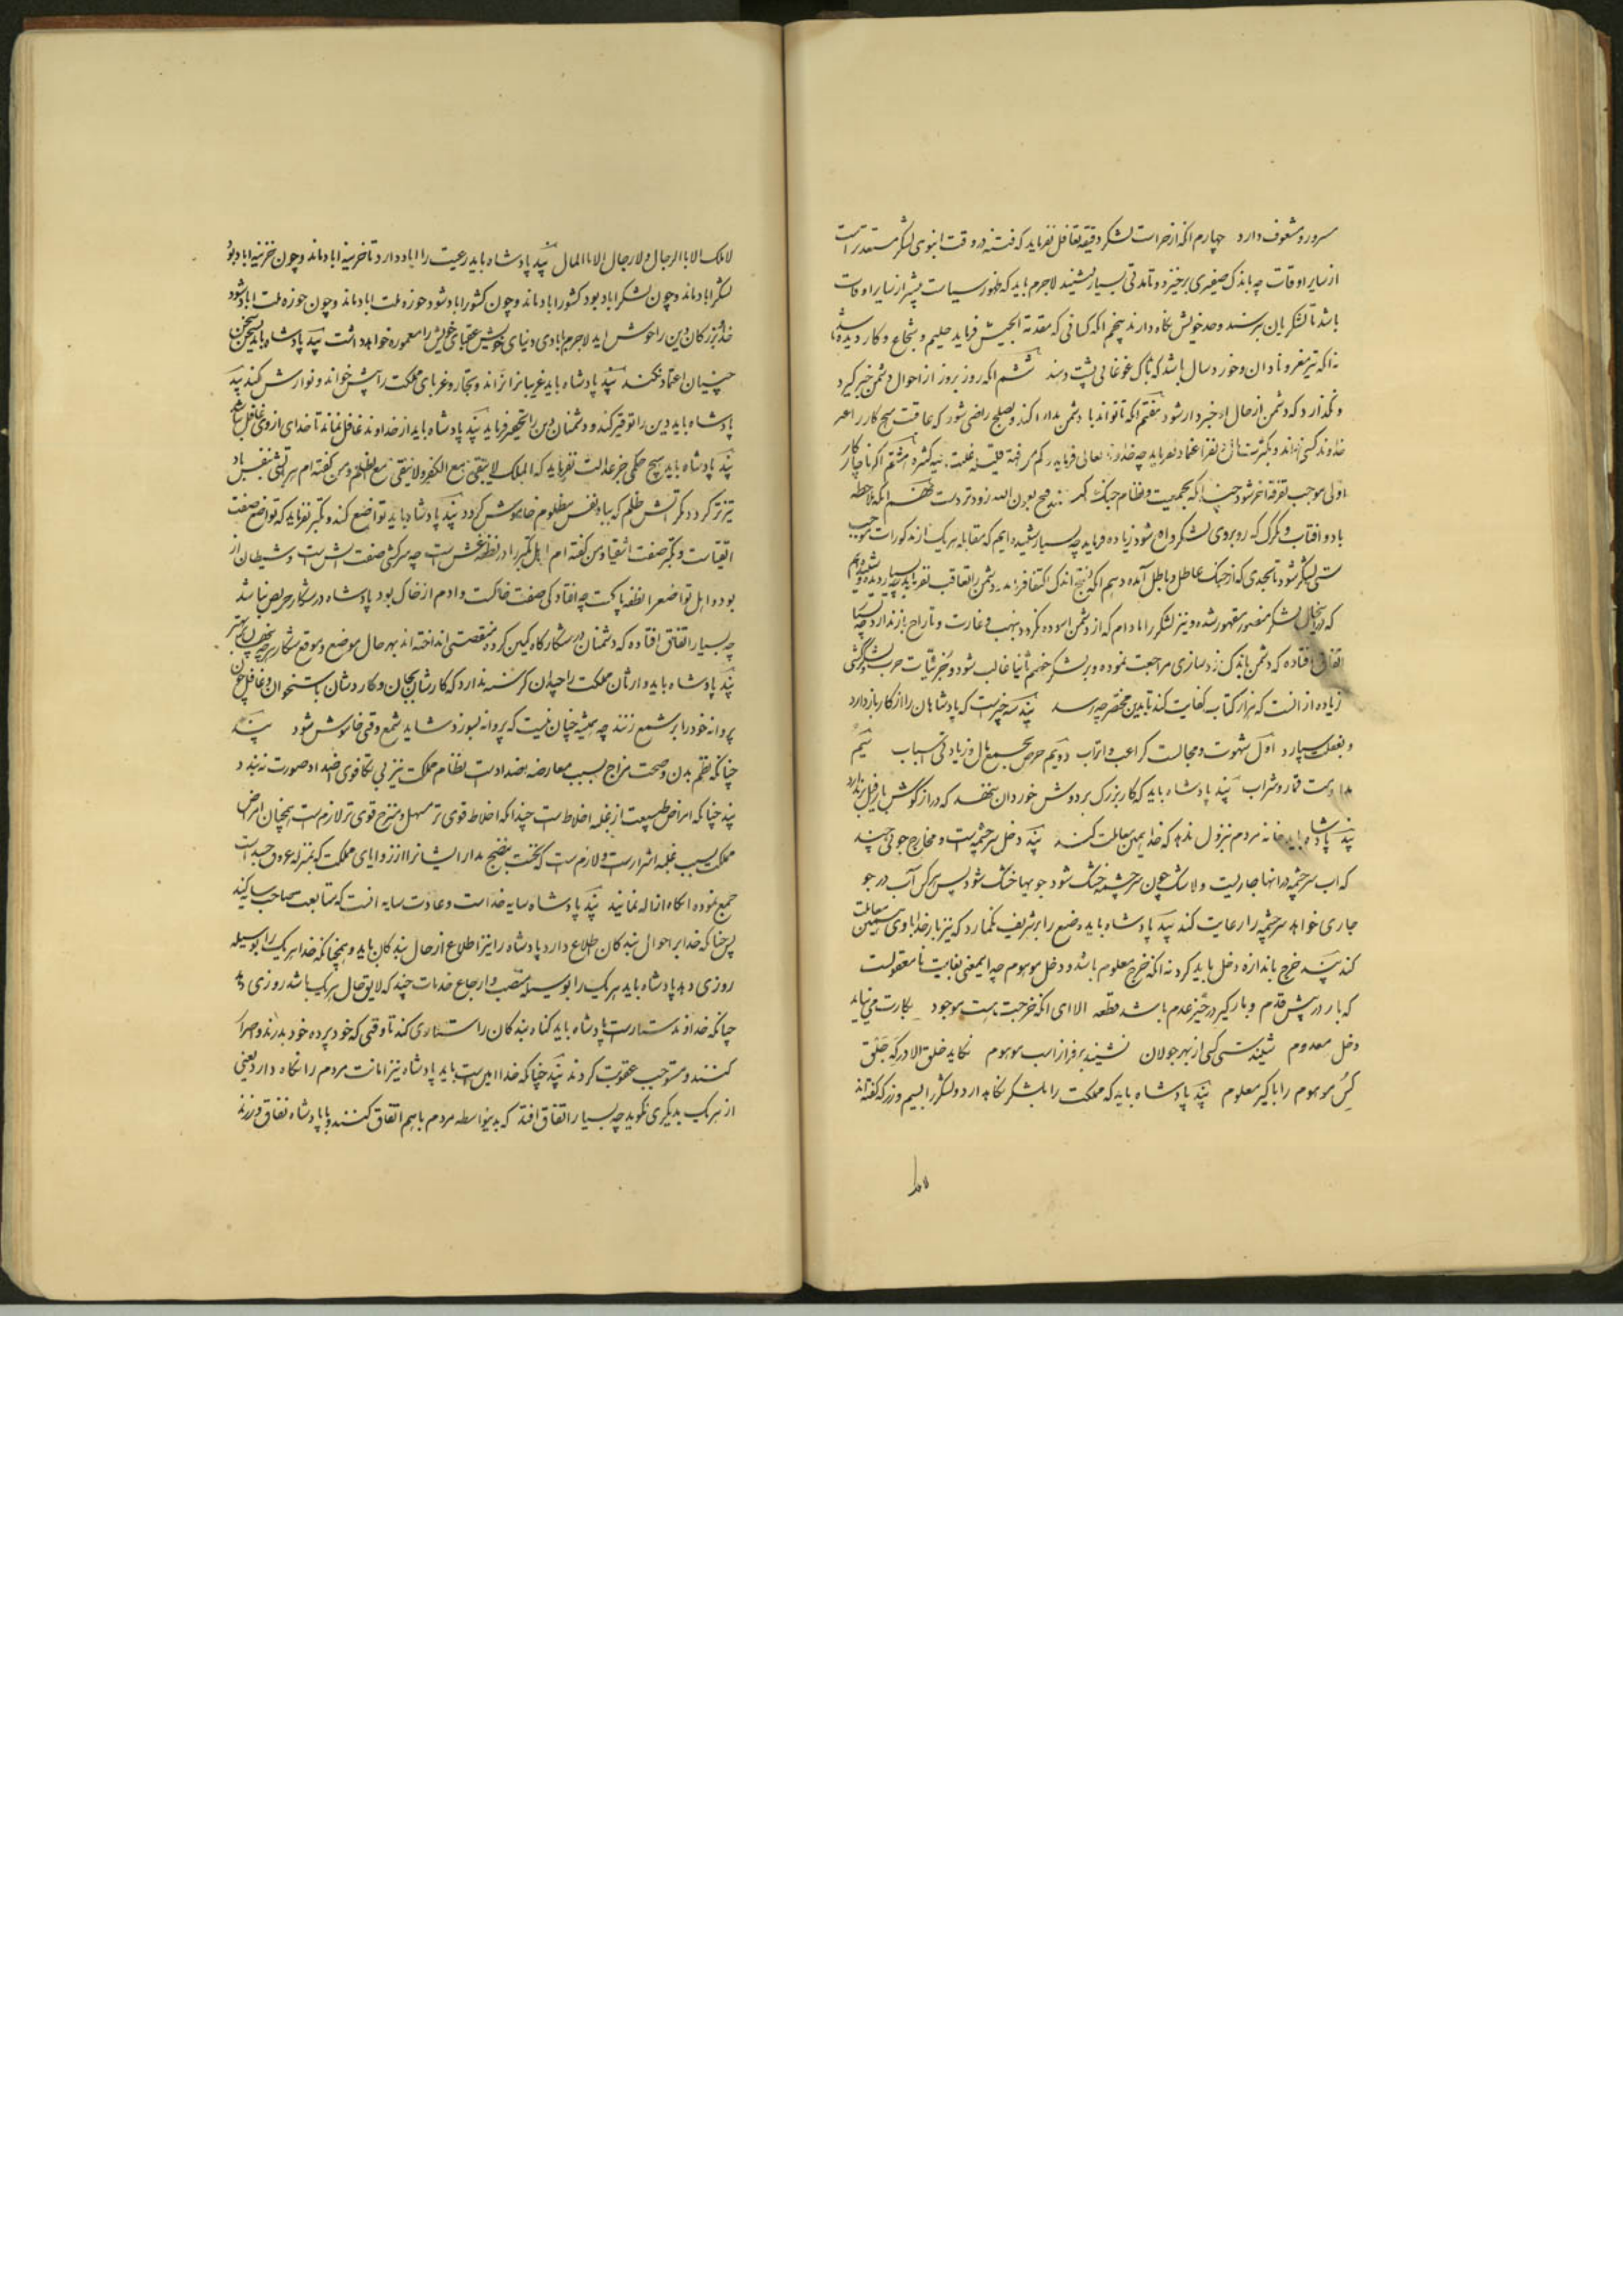 مسرور و مشعوف دارد چهارم انکه از حراست لشکر دقیقه تغافل نفرماید که فتنه در وقت انبوی لشکر مستعدتر است
از سایر اوقات چه باندک صفیری برخیزد و تا مدتی بسیار ننشیند لاجرم باید که ظهور سیاست بیشتر از سایر اوقات
باشد تا لشکریان بترسند و حد خویش نگاه دارند پنجم انکه کسانی که مقدمة الجیش فرماید حلیم و شجاع و کار دیده باشد
نه انکه تیز مغز و نادان و خورد سال باشد که بانک غوغائی پشت دهند ششم انکه روز بروز از احوال دشمن خبر گیرد
و نگذارد که دشمن از حال او خبردار شود هفتم انکه تا تواند با دشمن مدارا کند و بصلح راضی شود که عاقبت هیچ کار را جز
خداوند کسی نداند و بکثرت نفر اعتماد نفرماید چه خدای تعالی فرماید کم من فئة قلیلة غلبت فئة کثیرة هشتم اگر ناچار کار
اولی موجب تفرقه اخر شود چه انکه بجمعیت و نظام جنک کنند فتح بعون الله زودتر دست دهد نهم انکه ملاحظه
باد و افتاب و کرک که روبروی لشکر واقع شود زیاده فرماید چه بسیار شنیده ایم که مقابله هر یک از مذکورات موجب
سستی لشکر شود تا بحدی که از جنک عاطل و باطل آمده دهم انکه بفتح اندک اکتفا فرماید و دشمن را تعاقب نفرماید چه بسیار دیده و شنیده ایم
که در انحال لشکر منصور مقهور شده و نیز لشکر را مادام که از دشمن اسوده نگردد بنهب و غارت و تاراج باز ندارد چه بسیار
اتفاق افتاده که دشمن باندک زد سازی مراجعت نموده و بر لشکر خصم ثانیا غالب شود و جزئیات حرب و لشکر کشی
زیاده از انست که هزار کتاب کفایت کند تا بدین مختصر چه رسد پند سه چیزست که پادشاهان را از کار باز دارد
و بغفلت سپارد اول شهوت و مجالست کواعب و اتراب دویم حرص بجمع مال و زیادتی اسباب سیم
مداومت قمار و شراب پند پادشاه باید که کار بزرک بر دوش خوردان ننهد که دراز گوش بار فیل بر ندارد
پند پادشاه باید خانه مردم بنزول ندهد که خدا بهمین معاملت کند پند دخل سر چشمه ایست و مخارج جوئی چند
که اب سر چشمه در انها جاریست و لاشک چون سر چشمه خشک شود جویها خشک شود پس هر کس آب در جو
جاری خواهد سر چشمه را رعایت کند پند پادشاه باید وضیع را بر شریف نگمارد که نیز بار خدا با وی همین معاملت
کند پند خرج باندازه دخل باید کرد نه انکه خرج معلوم باشد و دخل موهوم چه اینمعنی بغایت نامعقولست
که بار در پیش قدم و بارگیر در حیز عدم باشد قطعه الا ای انکه خرجت هست موجود بکارت می نیاید
دخل معدوم شنیدستی کسی از بهر جولان نشیند بر فراز اسب موهوم نگاید خلق الا در که جلق
کس موهوم را با کیر معلوم پند پادشاه باید که مملکت را بلشکر نگاهدارد و لشکر را بسیم و زر که گفته اند
لا ملک
لا ملک الا بالرجال و لا رجال الا بالمال پند پادشاه باید رعیت را اباد دارد تا خزینه اباد ماند و چون خزینه اباد بود
لشکر اباد ماند و چون لشکر اباد بود کشور اباد ماند و چون کشور اباد شود حوزه ملت اباد ماند و چون حوزه ملت اباد شود
خدا و بزرکان دین را خوش اید لاجرم بابادی دنیای خویش عقبای خویش را معمور خواهد داشت پند پادشاه باید بسخن
سخن چینان اعتماد نکند پند پادشاه باید غریبانرا نراند و تجار و غربای مملکت را پیش خواند و نوازش کند پند
پادشاه باید دین را توقیر کند و دشمنان دین را تحقیر فرماید پند پادشاه باید از خداوند غافل نماند تا خدای از وی غافل نباشد
پند پادشاه باید هیچ حکمی جز عدالت نفرماید که الملک یبقی مع الکفر و لا یبقی مع الظلم و من گفته ام هر اتشی بنفس باد
تیزتر گردد مگر اتش ظلم که بباد نفس مظلوم خاموش گردد پند پادشاه باید تواضع کند و تکبر نفرماید که تواضع صفت
اتقیاست و تکبر صفت اشقیا و من گفته ام اهل تکبر را در نطفه غش است چه سرکشی صفت اتش است و شیطان از
بوده و اهل تواضع را نطفه پاکست چه افتادگی صفت خاکست و ادم از خاک بود پادشاه در شکار حریص نباشد
چه بسیار اتفاق افتاده که دشمنان در شکارگاه کمین کرده منقصتی انداخته اند بهر حال موضع و موقع شکار هر چه پنهان بهتر
پند پادشاه باید وارثان مملکت را چندان گرسنه ندارد که کارشان بجان و کاردشان باستخوان
پروانه خود را بر شمع زنند چه همیشه چنان نیست که پروانه بسوزد شاید شمع وقتی خاموش شود پند
چنانکه نظم بدن و صحت مزاج بسبب معارضه بضدادست نظام مملکت نیز بی تکافوی اضداد صورت نه بندد
پند چنانکه امراض طبیعت از غلبه اخلاطست چندانکه اخلاط قوی تر مسهل و منضج قوی تر لازمست همچنان امراض
مملکت بسبب غلبه اشرارست و لازمست که نخست بنضج مدارا ایشانرا از زوایای مملکت که بمنزله عروق جسد است
جمع نموده انگاه ازاله نمایند پند پادشاه سایه خداست و عادت سایه انست که متابعت صاحب سایه کند
پس چنانکه خدا بر احوال بندکان اطلاع دارد پادشاه را نیز اطلاع از حال بندکان باید و همچنانکه خدا هر یک را بوسیله
روزی دهد پادشاه باید هر یک را بوسیله منصب و ارجاع خدمات چند که لایق حال هر یک باشد روزی دهد
چنانکه خداوند ستارست پادشاه باید گناه بندکان را ستاری کند تا وقتی که خود پرده خود بدرند و اصرار
کنند و مستوجب عقوبت گردند پند چنانکه خدا امین است باید پادشاه نیز امانت مردم را نگاه دارد یعنی
از هر یک بدیگری نگوید چه بسیار اتفاق افتد که بدینواسطه مردم با هم اتفاق کنند و با پادشاه نفاق ورزند